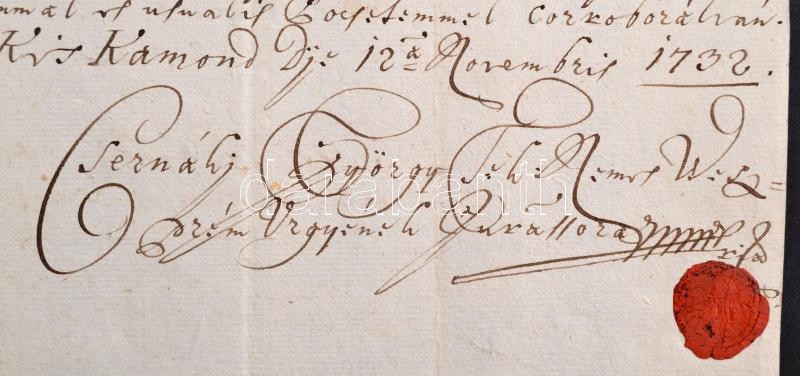 usualis Pocsetemmel corroboráltván.
Kis Kamond Die 12a Novembris 1732.
Csernáhj György Tek. Nemes Wesz=
prém Vrgyének Jurassora
darabanth